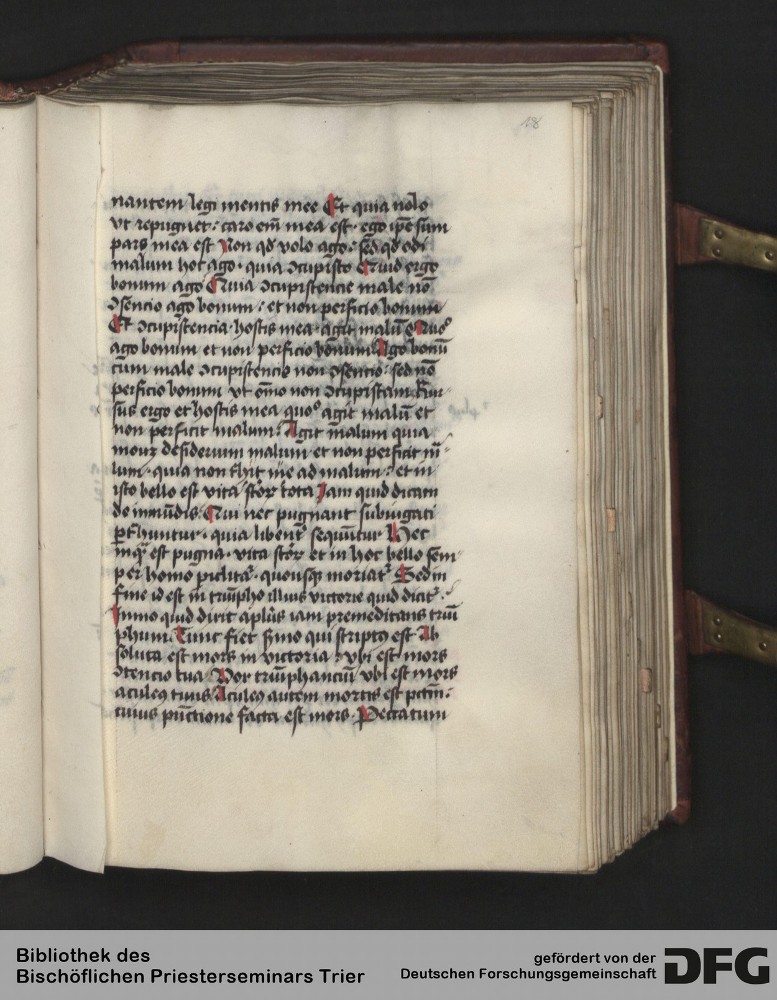 18
nantem legi mentis mee Et quia nolo
vt repugnet: caro em̄ mea est· ego ip̄e sum
pars mea est Non qd volo ago: sed qd odi
malum hoc ago· quia ɔcupisco Quid ergo
bonum ago Quia ɔcupiscencie male nō
ɔsencio ago bonum: et non perficio bonum
Et ɔcupiscencia hostis mea agit malū Quoº
ago bonum et non perficio bonum Ago bonū
cum male ɔcupiscencie non ɔsencio: sed nō
perficio bonum vt om̄o non ɔcupiscam Rur-
sus ergo et hostis mea quoº agit malū et
non perficit malum: Agit malum quia
mouꝫ desiderium malum· et non perficit m̄-
lum· quia non t̄hit me ad malum: et in
isto bello est vita sctōꝝ tota Iam quid dicam
de inmūdis Qui nec pugnant subiugati
pt̄huntur· quia libent᷑ sequūtur Hec
inq̄ est pugna· vita sctōꝝ et in hoc bello sem-
per homo piclitat᷑· quousqꝫ moriat᷑ Sed in
fine id est in triūpho illius victorie quid dicit᷑·
Immo quid dicit apl̄us iam premeditans triū
phum· Tunc fiet smo qui scriptꝰ est Ab
soluta est mors in victoria vbi est mors
ɔtencio tua Vox triūphanciū vbi est mors
aculeꝰ tuus Aculeꝰ autem mortis est pctm̄:
cuius pūctione facta est mors· Peccatum
Bibliothek des
Bischöflichen Priesterseminars Trier
gefördert von der
Deutschen Forschungsgemeinschaft
DFG